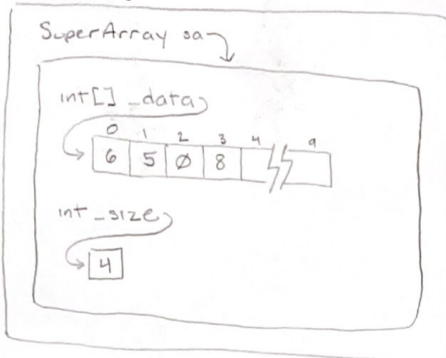 SuperArray sa
int[] _data
0 1 2 3 4 9
6 5 0 8
int _size
4